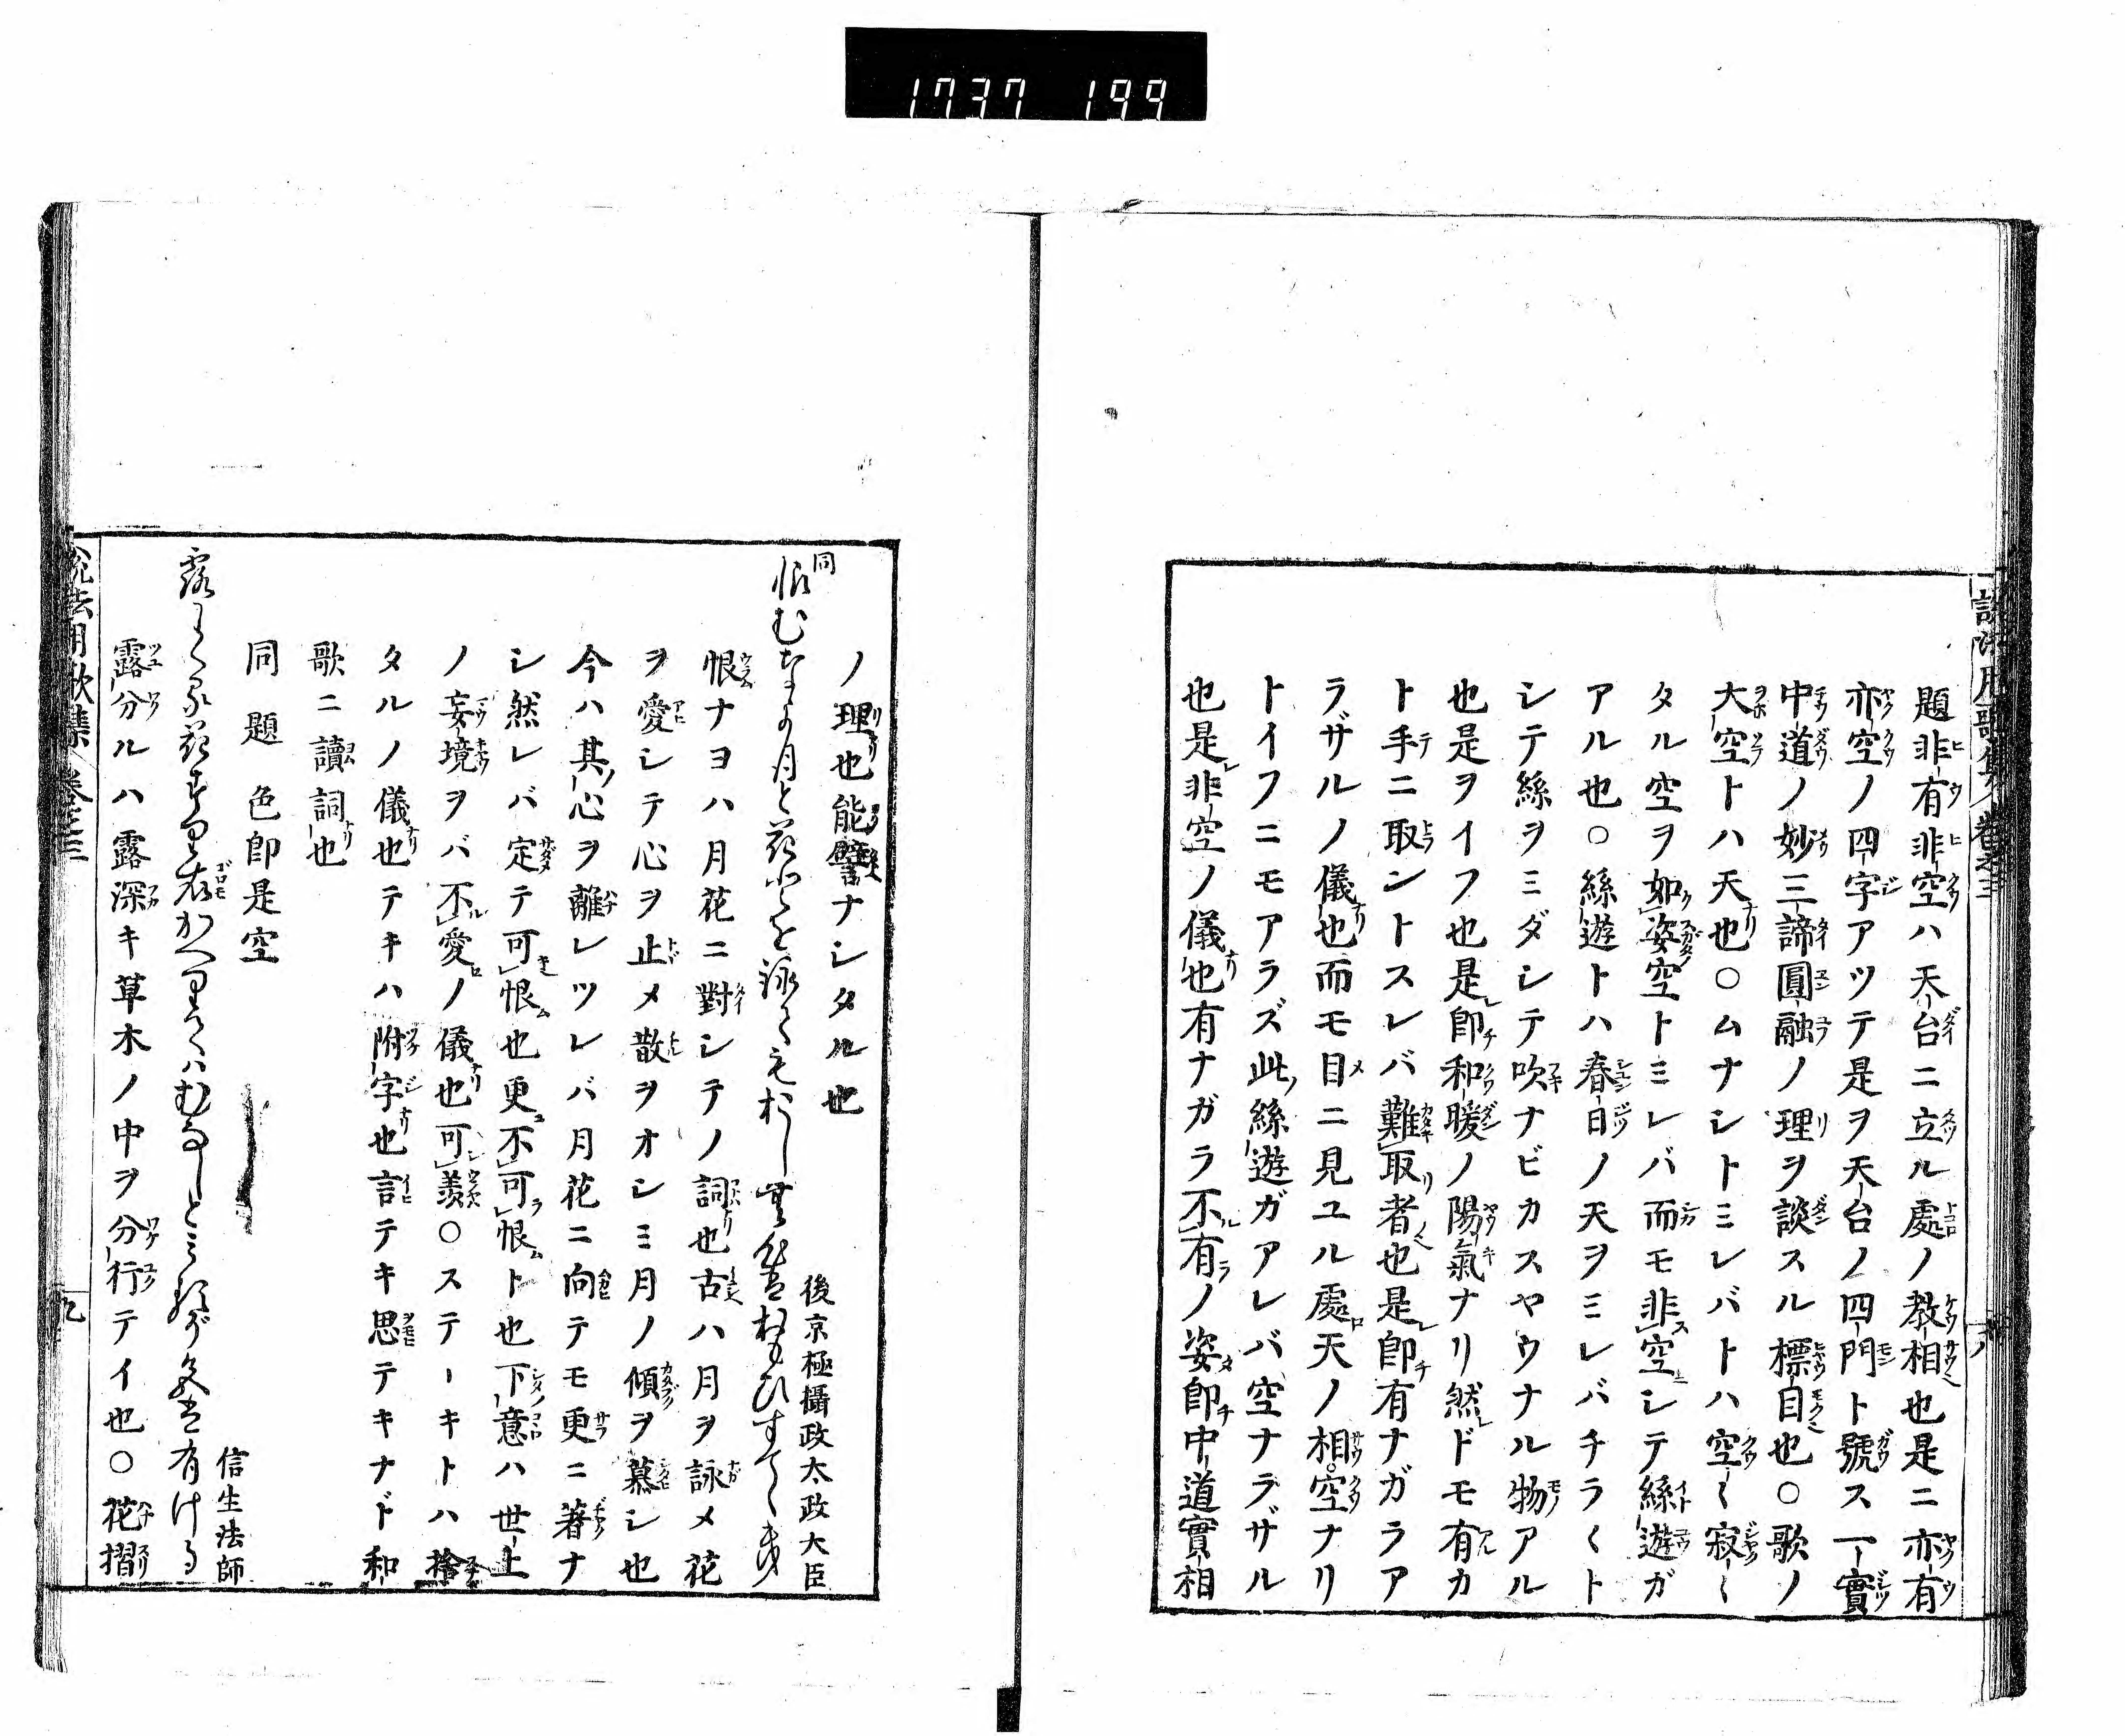 1737 199
説法用歌集 卷之三
題非有非空ハ天台ニ立ル處ノ教相也是ニ亦有
亦空ノ四字アツテ是ヲ天台ノ四門ト號ス一實
中道ノ妙三諦圓融ノ理ヲ談スル標目也○歌ノ
大空トハ天也○ムナシトミレバトハ空〱寂〱
タル空ヲ如姿空トミレバ而モ非空シテ絲遊ガ
アル也○絲遊トハ春日ノ天ヲミレバチラ〱ト
シテ絲ヲミダシテ吹ナビカスヤウナル物アル
也是ヲイフ也是即和暖ノ陽氣ナリ然ドモ有カ
ト手ニ取ントスレバ難取者也是即有ナガラア
ラザルノ儀也而モ目ニ見ユル處天ノ相空ナリ
トイフニモアラズ此絲遊ガアレバ空ナラザル
也是非空ノ儀也有ナガラ不有ノ姿即中道實相
八
ノ理也能譬ナシタル也
同
後京極攝政太政大臣
恨むなよ月と花とを詠ても惜し心は思ひすてき
恨ナヨハ月花ニ對シテノ詞也古ハ月ヲ詠メ花
ヲ愛シテ心ヲ止メ散ヲオシミ月ノ傾ヲ慕シ也
今ハ其心ヲ離レツレバ月花ニ向テモ更ニ著ナ
シ然レバ定テ可恨也更不可恨ト也下意ハ世上
ノ妄境ヲバ不愛ノ儀也可羨○ステーキトハ捨
タルノ儀也テキハ附字也言テキ思テキナド和
歌ニ讀詞也
同題 色即是空
信生法師
露わくる花すり衣かへりてはむなしとみるぞ色は有ける
露分ルハ露深キ草木ノ中ヲ分行テイ也○花摺
説法用歌集 卷之三
九